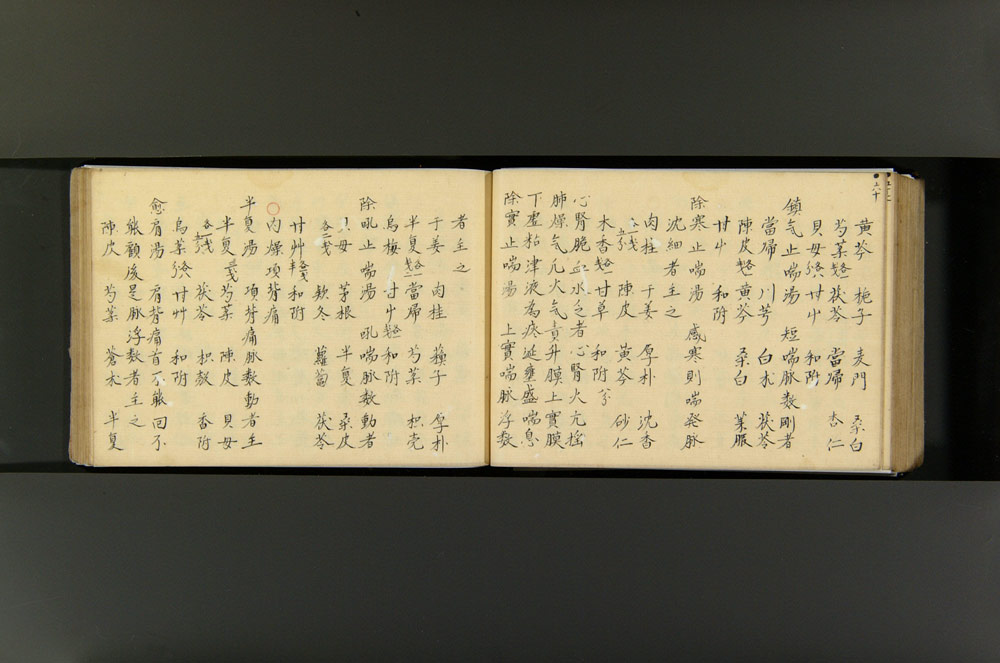 黄芩 梔子 麦門 桑白
芍薬 茯苓 當帰 杏仁
貝母 甘屮 和附
鎮気止喘湯 短喘脉数剛者
當帰 川芎 白朮 茯苓
陳皮 黄芩 桑白 莱服
甘屮 和附
除寒止喘湯 感寒則喘発脉
沈細者主之
肉桂 干姜 厚朴 沈香
陳皮 黄芩 砂仁
木香 甘草 和附
心腎脆血水乏者心腎火亢搖
肺燥气凡火气責升膜上實膜
下虚粘津液為痰涎壅盛喘息
除實止喘湯 上實喘脉浮数
者主之
干姜 肉桂 蘓子 厚朴
半夏 當帰 芍薬 枳壳
烏梅 甘屮 和附
除吼止喘湯 吼喘脉数動者
貝母 茅根 半夏 桑皮
各二戔 欵冬 蘿蔔 茯苓
甘艸 和附
○肉燥項背痛
半夏湯 項背痛脉数動者主
半夏 芍薬 陳皮 貝母
茯苓 枳殻 香附
烏薬 甘艸 和附
愈肩湯 肩背痛首不能回不
能顧後是脉浮数者主之
陳皮 芍薬 蒼朮 半夏